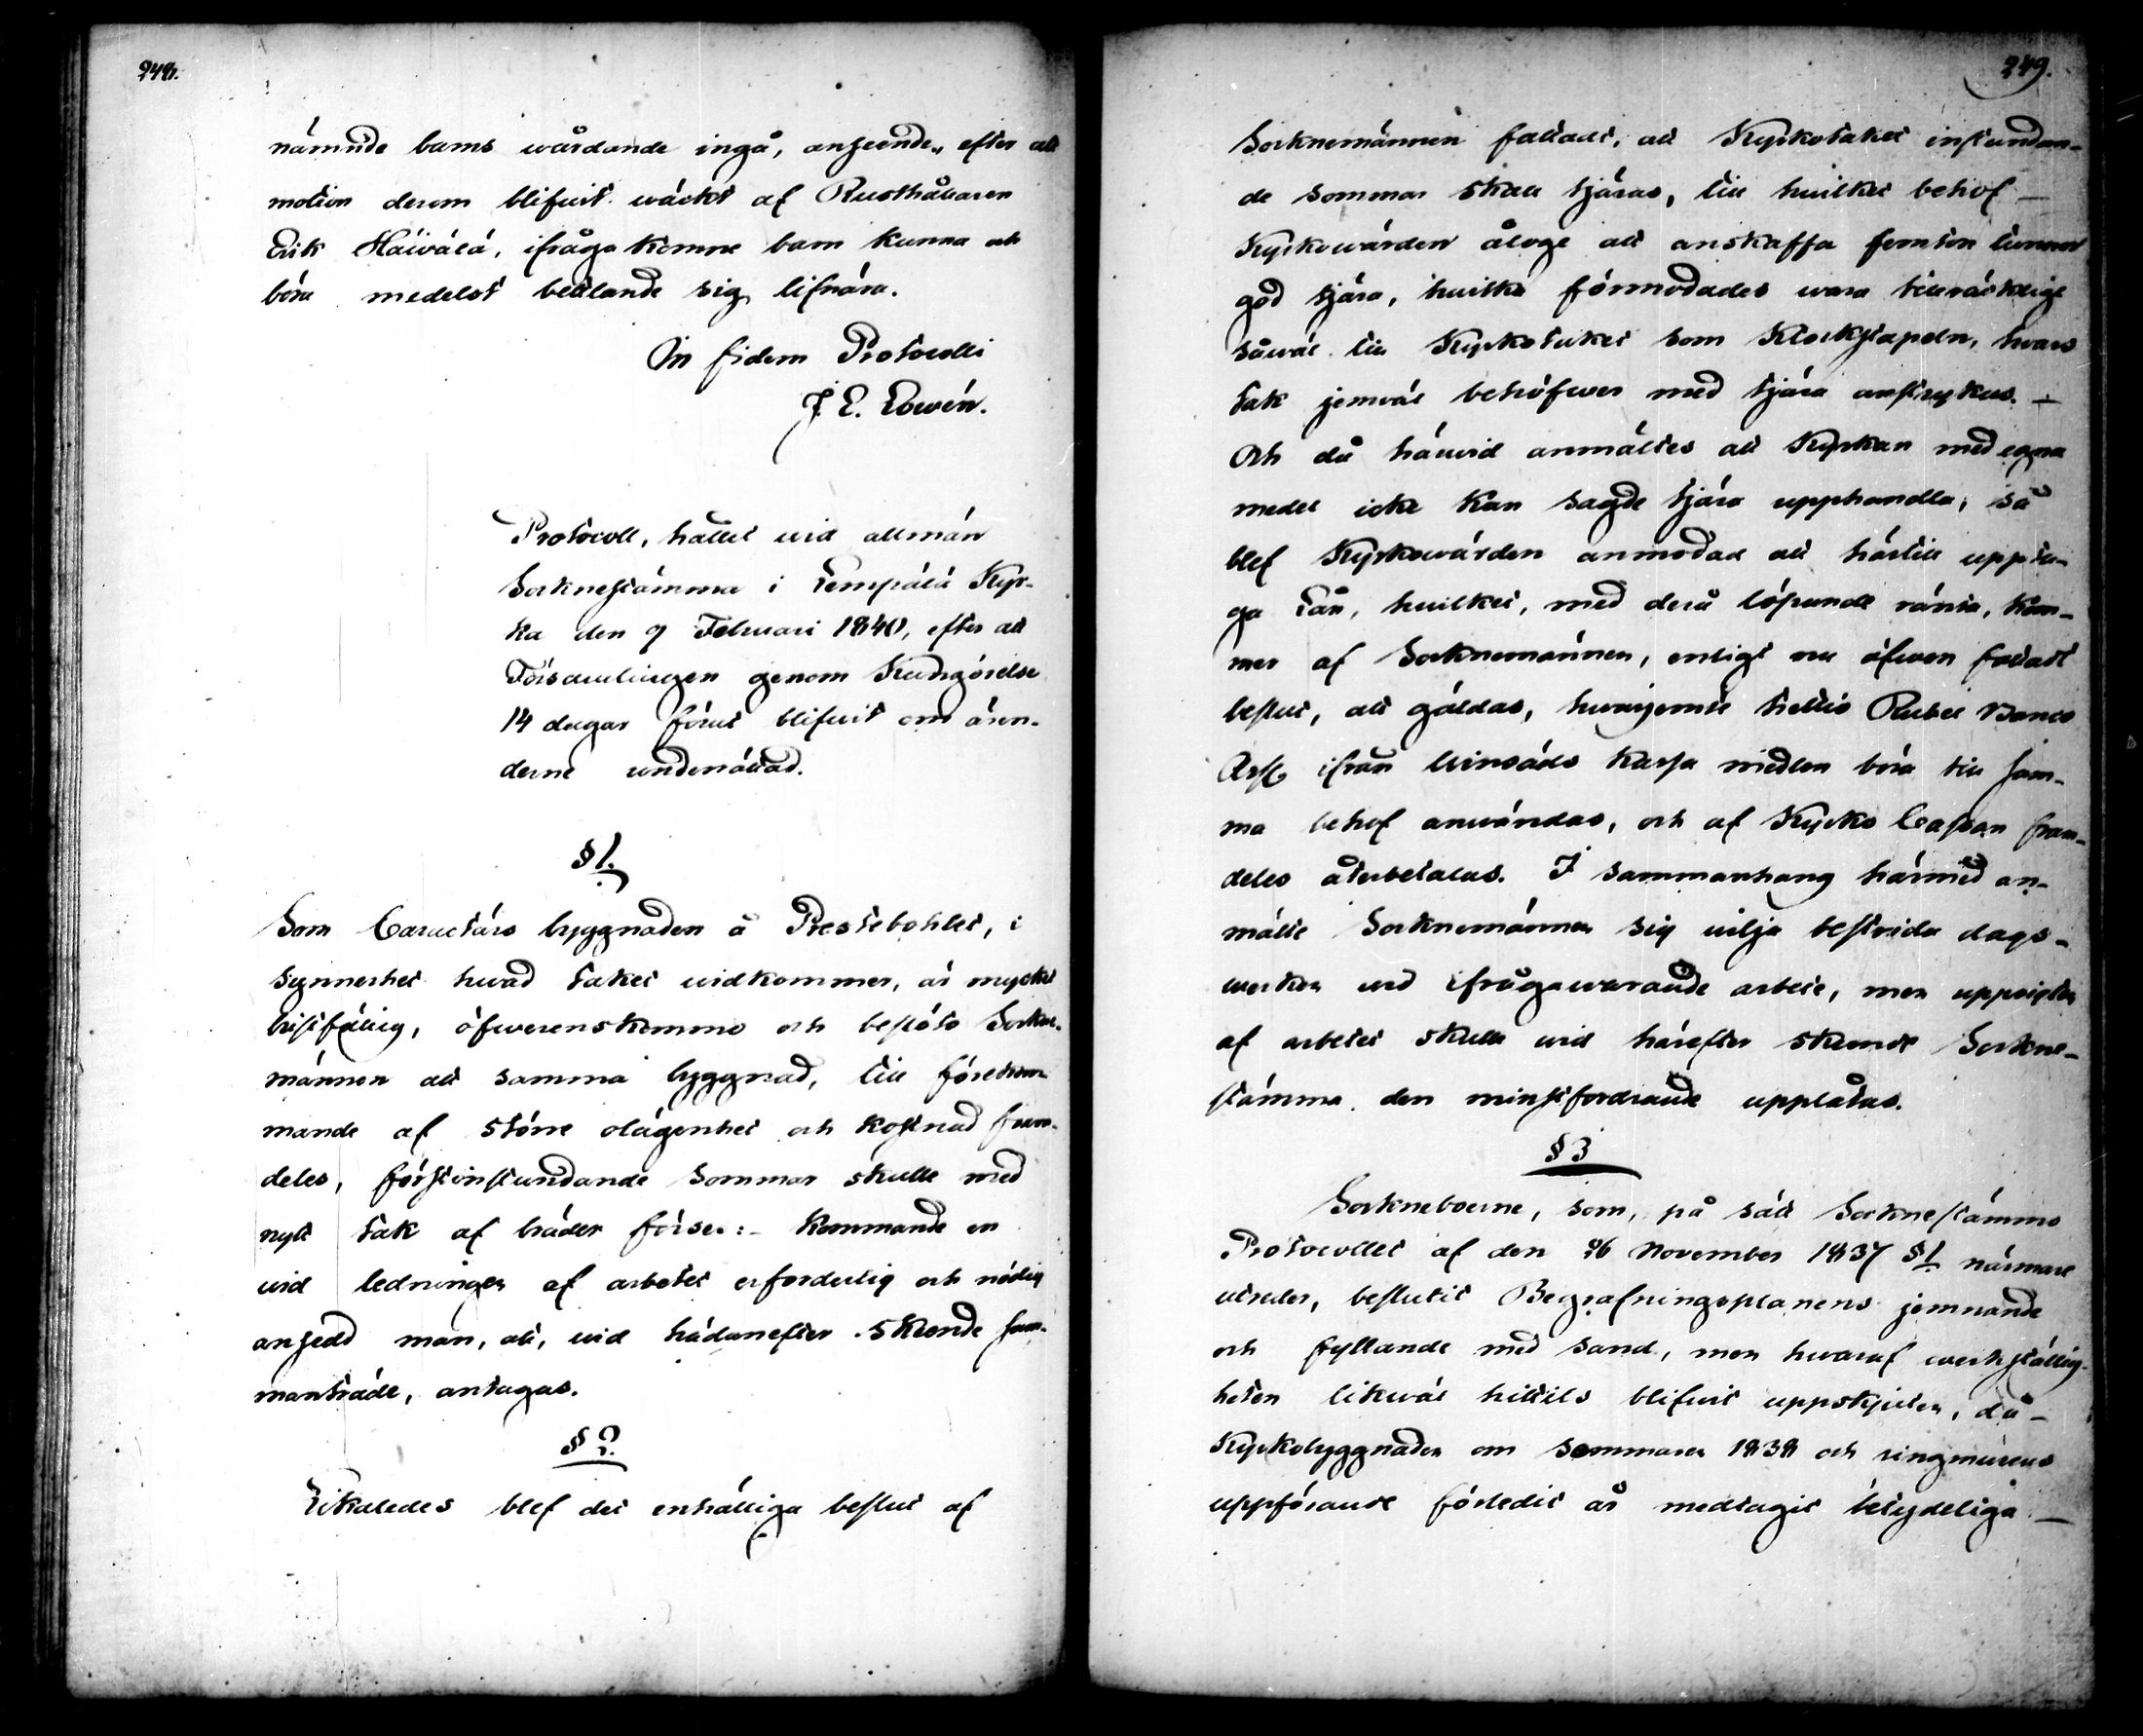 248.
nämnde barns wårdande ingå, anseende, efter att
motion derom blifwit wäckt af Rusthållaren
Erik Häiwälä, ifrågakomne barn kunna och
böra medelst betlande sig lifnära.
In fidem Protocolli
J. E. Lowén.
Protocoll, hållet wid allmän
Sockneständma i Lempälä Kyr-
ka den 9 Februari 1840, efter att
Församlingen genom Kudngörelse
14 dagar förut blifwit om ären-
derne underrättad.
§ 1.
Som Caractärs byggnaden å Prestebohlet, i
synnerhet hwad taket widkommer, är mycket
bristfällig, öfwerenskommo och beslöto Sockne-
männen att samma byggnad, till förekom-
mande af större olägenhet och kostnad fram-
deles, förstinstundande Sommar skulle med
nytt tak af bräder förses:- Kommande en
wid ledningen af arbetet erforderlig och nödig
ansedd man, att, wid hädanefter skeende sam-
manträde, antagas.
§ 2.
Likaledes blef det enhälliga beslut af
249.
Sockn­emännen fattadt, att Kyrkotaket instundan-
de sommar skall tjäras, till hwilket behof –
Kyrkowärden åloge att anskaffa femton tunnor
god tjära, hwilka förmodades wara tillräcklige
såwäl till Kyrkotaket som Klockstapeln, hwars
tak jemwäl behöfwer med tjära anstrykas. –
Och då härwid anmältes att Kyrkan med egna
medel icke kan sagde tjära upphandla, så
blef Kyrkowärden anmodad att härtill uppta-
ga Lån, hwilket, med derå löpande ränta, kom-
mer af Socknemännen, enligt nu äfwen fattadt
beslut, att gäldas, hwarjemte trettio Rubel Banco
Ass. ifrån Winsäds kassa medlen böra till sam-
ma behof användas, och af Kyrko Cassan fram-
deles återbetalas. I sammanhang härmed an-
mälte Socknemännen sig wilja bestrida dags-
werken wid ifrågawarande arbete, men uppsigten
af arbetet skulle wid härefter skeende Sockne-
stämma den minstfordrande upplåtas.
§ 3
Sockneboerne, som, på sätt Sockneständmo
Protocollet af den 26 November 1837 § 1 närmare
utreder, beslutit Begrafningsplanens jemnande
och fyllande med sand, men hwaraf werkställig-
heten likwäl hittils blifwit uppskjuten, då –
Kyrkobyggnaden om sommaren 1838 och ringmurens
uppförande förledit år medtagit betydeliga –